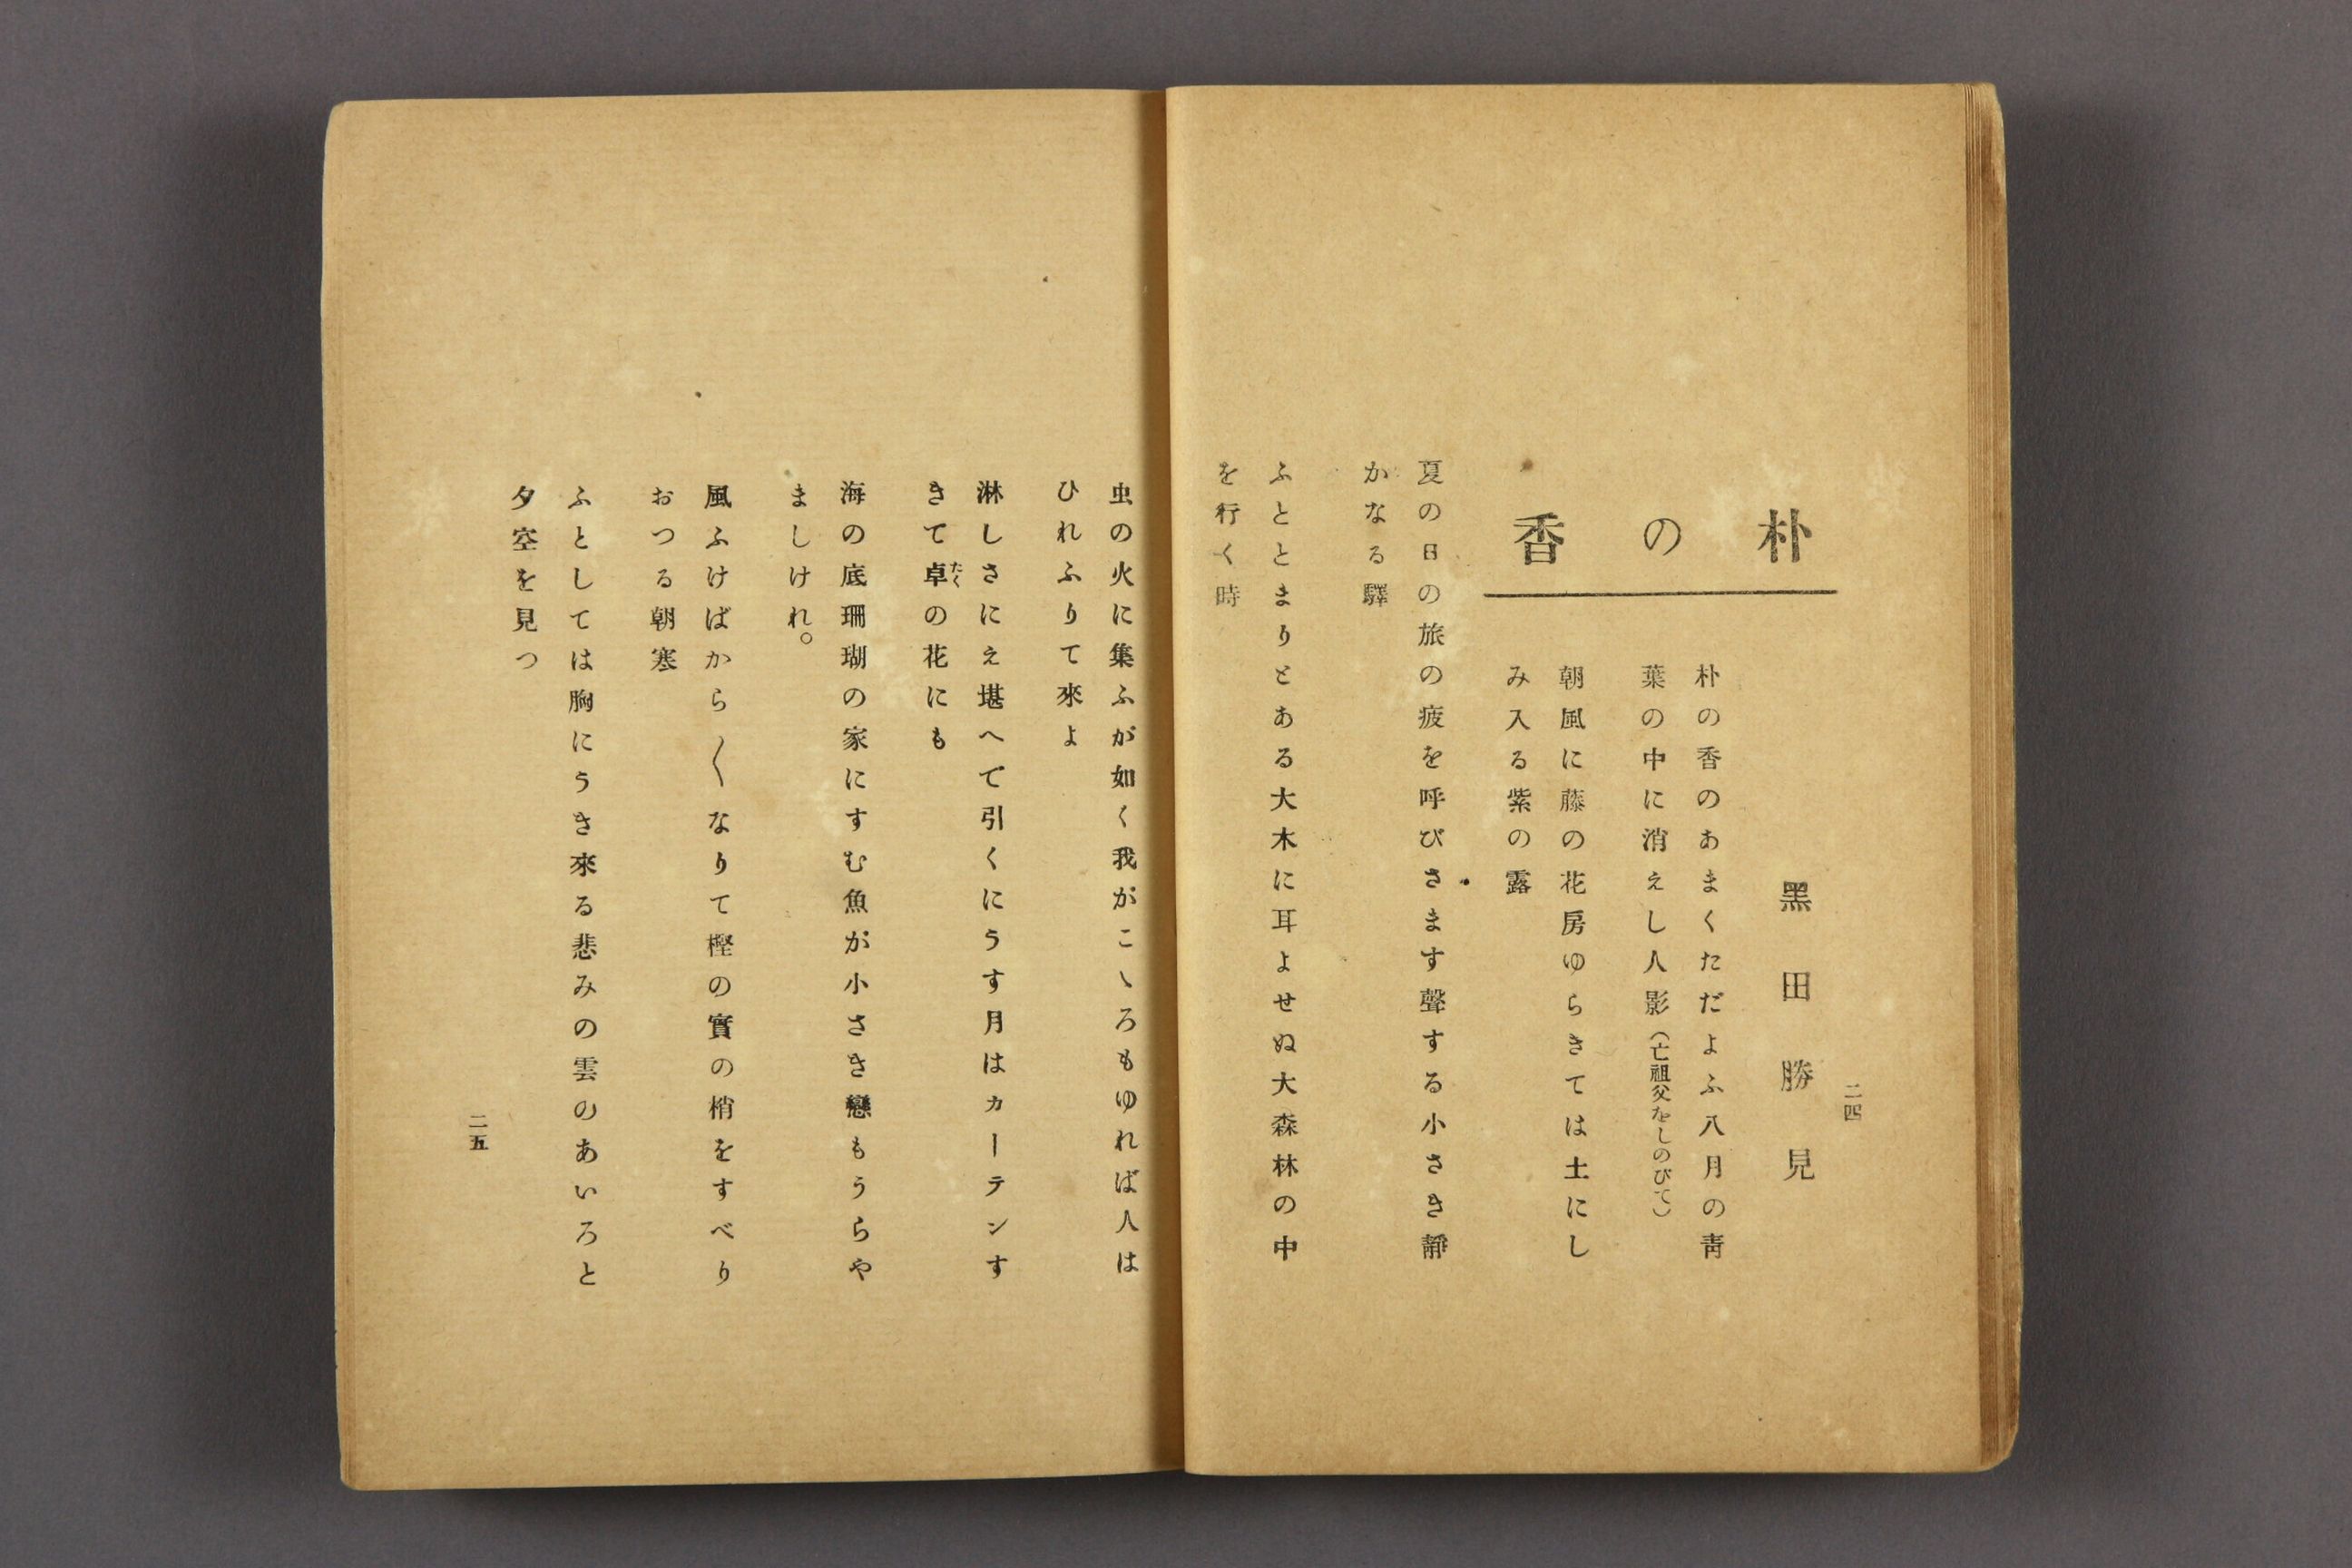 二四
朴の香
黑田勝見
朴の香のあまくただよふ八月の靑
葉の中に消えし人影(亡祖父をしのびて)
朝風に藤の花房ゆらきては土にし
み入る紫の露
夏の日の旅の疲を呼びさます聲する小さき靜
かなる驛
ふととまりとある大木に耳よせぬ大森林の中
を行く時
虫の火に集ふが如く我がこゝろもゆれば人は
ひれふりて來よ
淋しさにえ堪へで引くにうす月はカーテンす
きて卓の花にも
たく
海の底珊瑚の家にすむ魚が小さき戀もうらや
ましけれ。
風ふけばから〱なりて樫の實の梢をすべり
おつる朝寒
ふとしては胸にうき來る悲みの雲のあいろと
夕空を見つ
二五